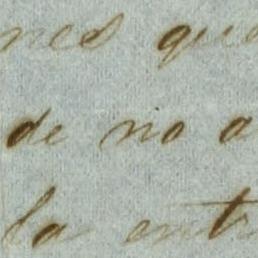 nes que
de no a
la ent